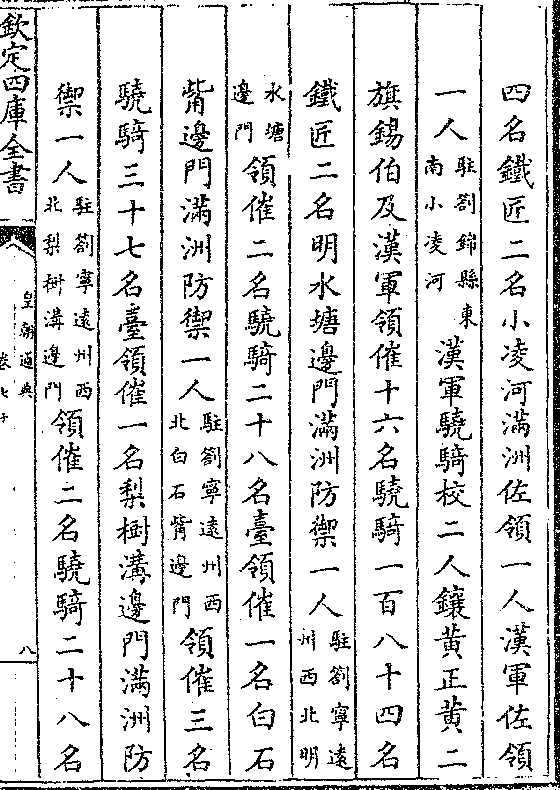 四名鐵匠二名小凌河滿洲佐領一人漢軍佐領
一人駐劄錦縣東南小凌河漢軍驍騎校二人鑲黃正黃二
旗錫伯及漢軍領催十六名驍騎一百八十四名
鐵匠二名明水塘邊門滿洲防禦一人駐劄寧遠州西北明
水塘邊門領催二名驍騎二十八名臺領催一名白石
觜邊門滿洲防禦一人駐劄寧遠州西北白石觜邊門領催三名
驍騎三十七名臺領催一名梨樹溝邊門滿洲防
禦一人駐劄寧遠州西北梨樹溝邊門領催二名驍騎二十八名
欽定四庫全書
皇朝通典
卷七十
八